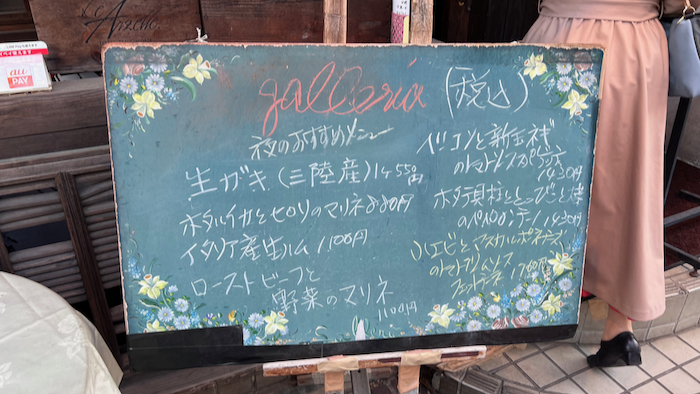 au
PAY
galleria (税込)
夜のおすすめメニュー
生ガキ(三陸産)1ヶ550円
ホタルイカとセロリのマリネ880円
イタリア産生ハム 1,100円
ローストビーフと
野菜のマリネ
1,100円
ベーコンと新玉ネギ
のトマトソーススパゲッティ
1,430円
ホタテ貝柱と
のペペロンチーノ 1,430円
小エビとマスカルポーネチーズ
のトマトクリームソース
フェットチーネ 1,700円